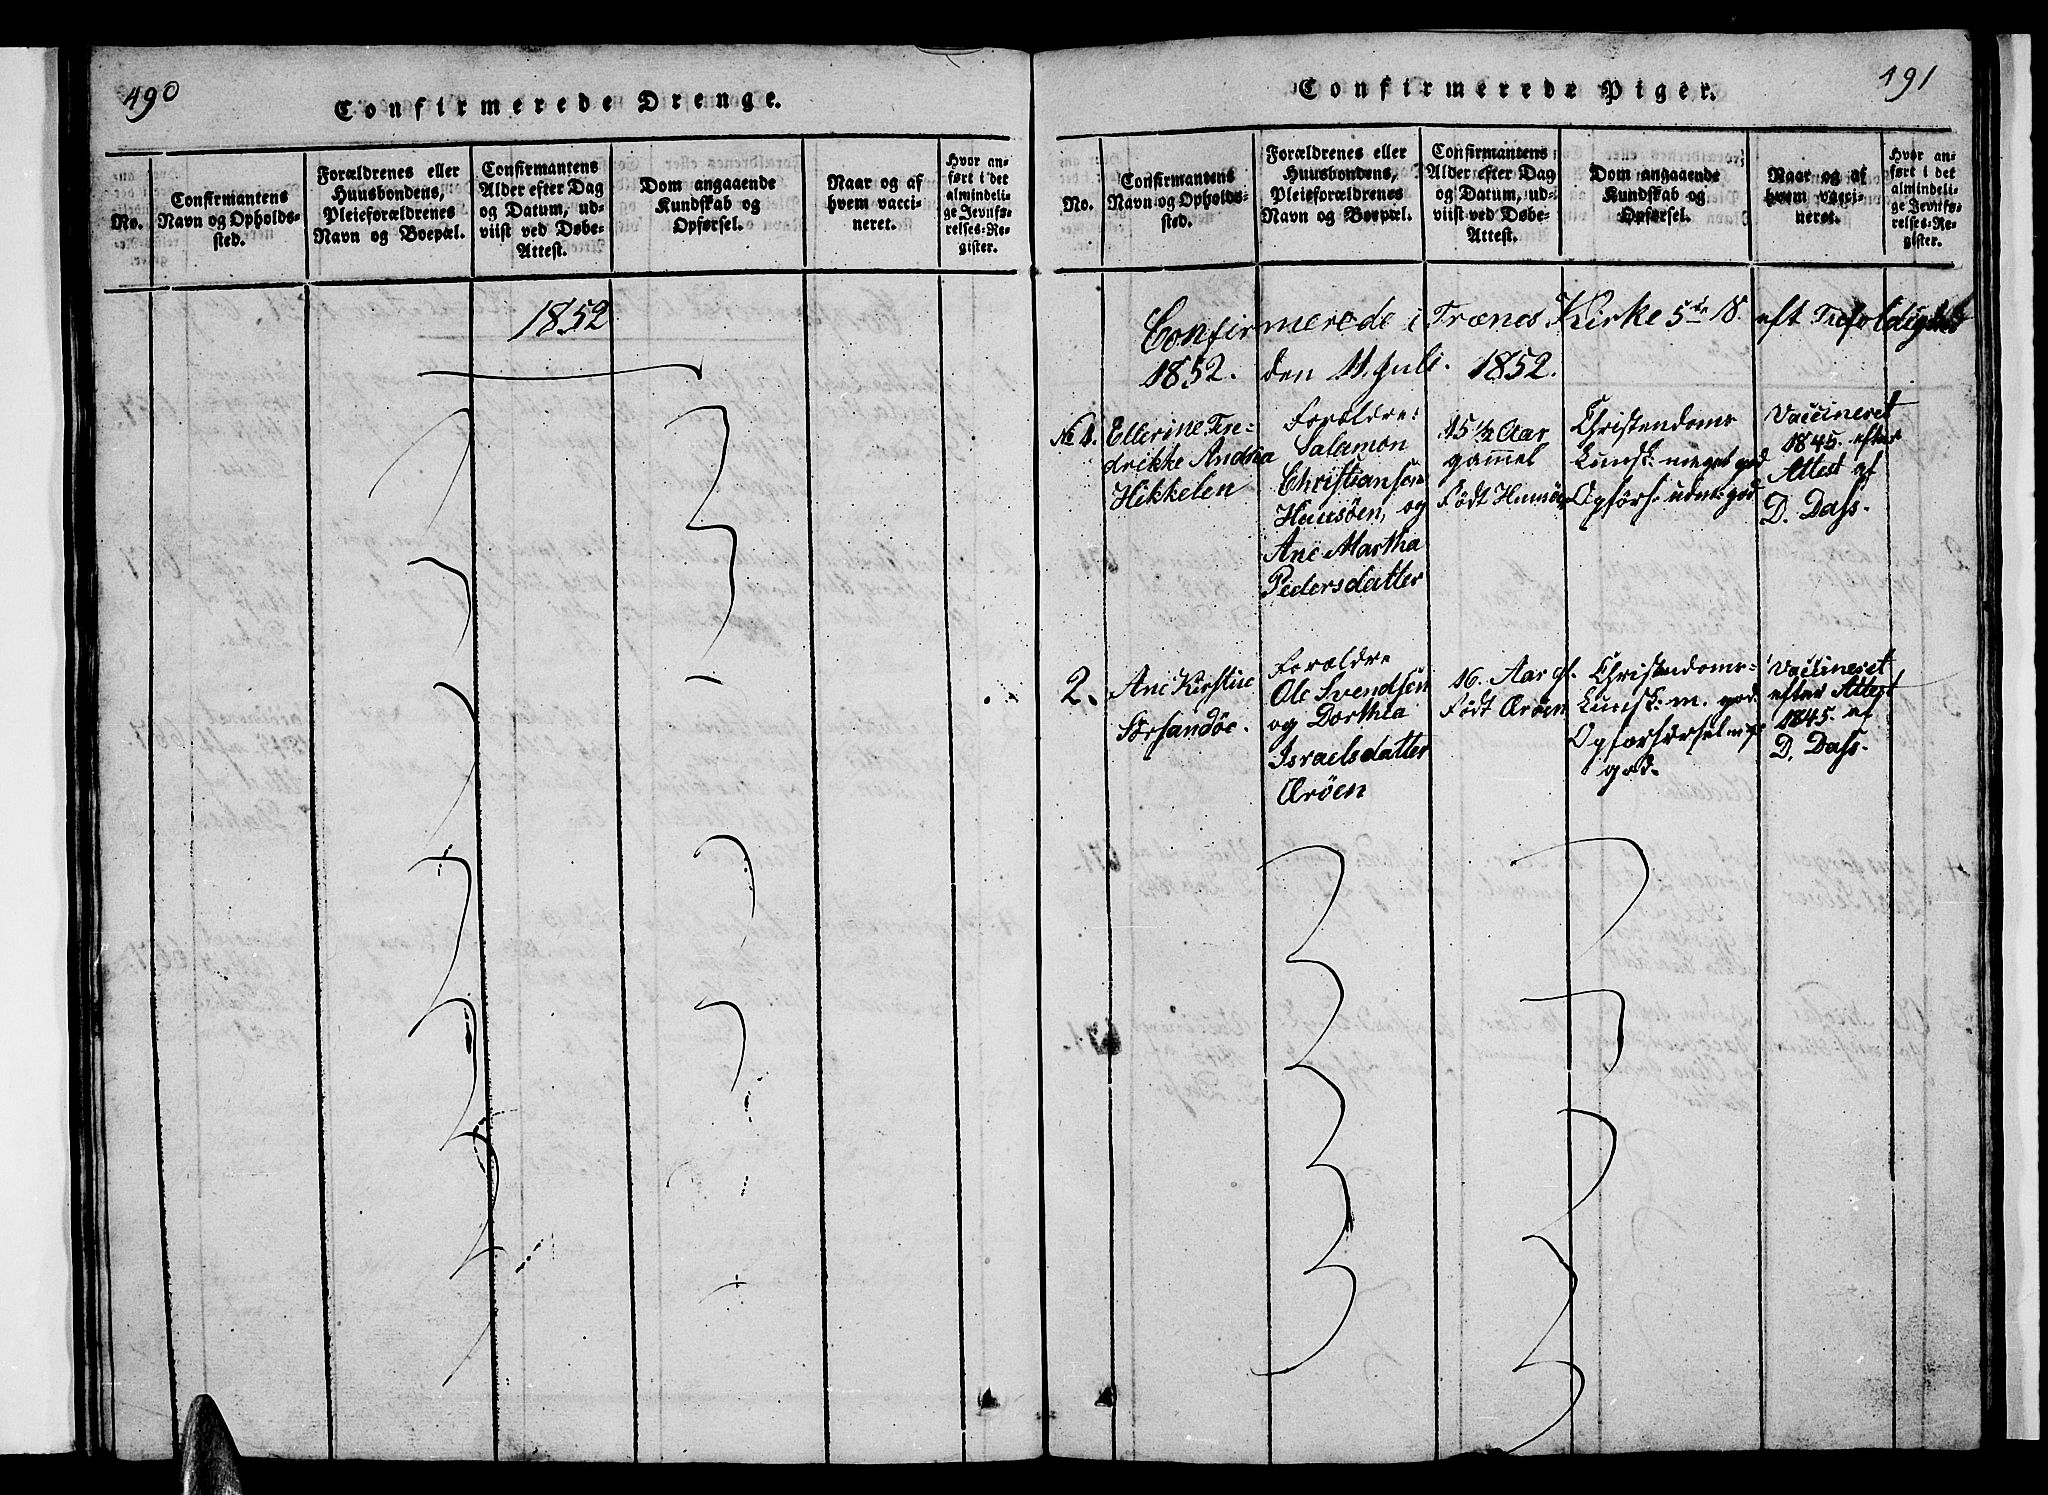 490
Confirmerede Drenge.
No.
Confirmantens
Navn og Opholds-
sted.
Forældrenes eller
Huusbondens,
Pleieforældrenes
Navn og Boepæl.
Confirmantens
Alder efter Dag
og Datum, ud-
viist ved Døbe-
Attest.
Dom angaaende
Kundskab og
Opførsel.
Naar og af
hvem vacci-
neret.
Hvor an-
ført i det
almindeli-
ge Jevnfø-
relses-Re-
gister.
1852
491
Confirmerede Piger.
No.
Confirmantens
Navn og Opholds-
sted.
Forældrenes eller
Huusbondens,
Pleieforældrenes
Navn og Boepæl.
Confirmantens
Alder efter Dag
og Datum, ud-
viist ved Døbe-
Attest.
Dom angaaende
Kundskab og
Opførsel.
Naar og af
hvem vacci-
neret.
Hvor an-
ført i det
almindeli-
ge Jevnfø-
relses-Re-
gister.
Confirmerede i Trænes Kirke 5te S. eft Trefoldighed
1852. den 11. Juli. 1852.
No 1.
Ellerine Fre-
drikke Andrea
Hikkelen
Forældre:
Salamon
Christiansen
Huusøen, og
Ane Martha
Pedersdatter
15 1/2 Aar
gammel
Født Huusøen
Christendoms
Kunsk: meget god
Opførs: udm: god
Vaccineret
1845. efter
Attest af
D. Dass.
2.
Ane Kirstine
Sørsandøe.
Forældre
Ole Svendsen
og Dorthea
Israelsdatter
Ærøen
16. Aar gl.
Født Ærøen
Christendoms-
Kunsk: m. god.
god.
Vaccineret
efter Attest
1845. af
D. Dass.